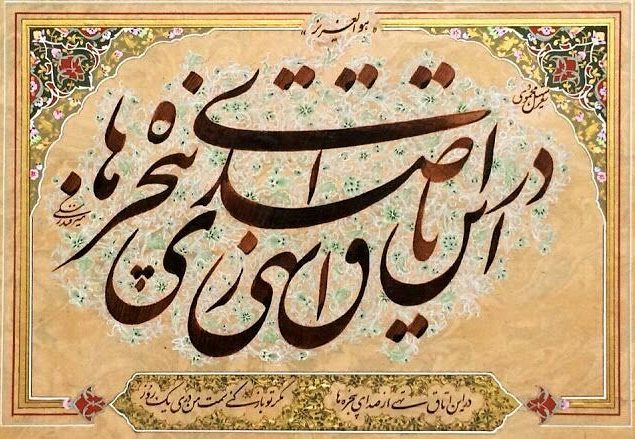 هو العزیز
در این اتاق تهی از صدای پنجره ها
در این اتاق تهی از صدای پنجره ها
مگر تو باز کنی سمت من دری یک روز